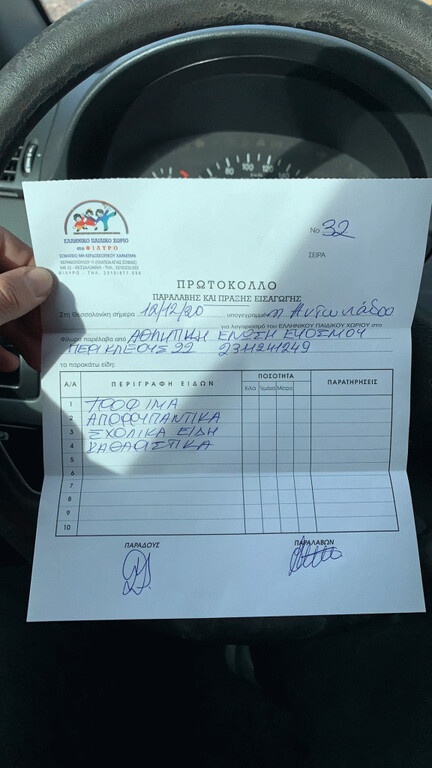 ΕΛΛΗΝΙΚΟ ΠΑΙΔΙΚΟ ΧΩΡΙΟ
στο ΦΙΛΥΡΟ
ΣΩΜΑΤΕΙΟ ΜΗ ΚΕΡΔΟΣΚΟΠΙΚΟΥ ΧΑΡΑΚΤΗΡΑ
No 32
ΣΕΙΡΑ
ΠΡΩΤΟΚΟΛΛΟ
ΠΑΡΑΛΑΒΗΣ ΚΑΙ ΠΡΑΞΗΣ ΕΙΣΑΓΩΓΗΣ
Στη Θεσσαλονίκη σήμερα 12/12/20 υπογεγραμμέν
για λογαριασμό του ΕΛΛΗΝΙΚΟΥ ΠΑΙΔΙΚΟΥ ΧΩΡΙΟΥ στο
Φίλυρο παρέλαβα από ΑΘΛΗΤΙΚΗ ΕΝΩΣΗ ΕΥΟΣΜΟΥ
ΠΕΡΙΚΛΕΟΥΣ 22
τα παρακάτω είδη:
Α/Α ΠΕΡΙΓΡΑΦΗ ΕΙΔΩΝ ΠΟΣΟΤΗΤΑ ΠΑΡΑΤΗΡΗΣΕΙΣ
Κιλά Τεμάχια Μέτρα
1 ΤΡΟΦΙΜΑ
2 ΑΠΟΡΡΥΠΑΝΤΙΚΑ
3 ΣΧΟΛΙΚΑ ΕΙΔΗ
4 ΚΑΘΑΡΙΣΤΙΚΑ
5
6
7
8
9
10
ΠΑΡΑΔΟΥΣ ΠΑΡΑΛΑΒΩΝ